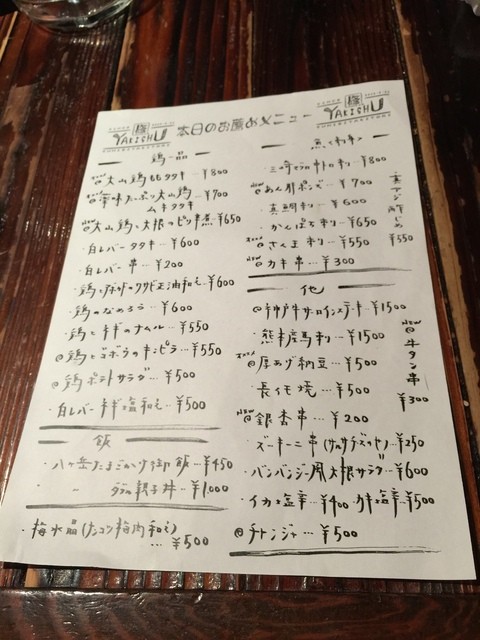 YAKISHU
本日のお薦めメニュー
YAKISHU
鶏一品
@大山鶏ももタタキ…¥800
大山鶏ムネタタキ ¥700
new@大山鶏と大根のピリ辛煮…¥650
・白レバータタキ…¥600
・白レバー串…¥200
¥600
・鶏のなめろう…¥600
・鶏とネギのナムル…¥550
@鶏とゴボウのキンピラ…¥550
@鶏ポテトサラダ…¥500
・白レバーネギ塩和え…¥500
飯
・八ヶ岳たまごかけ御飯…¥450
親子丼…¥1,000
・梅水晶(ナンコツ梅肉和え)
…¥500
¥800
new@あん肝ポン酢…¥700
・真鯛刺…¥600
・かんぱち刺…¥650
@さんま刺…¥550
new@カキ串…¥300
¥550
他
@神戸牛サーロインステーキ…¥1500
・熊本産馬刺…¥1500
@厚あげ納豆…¥500
・長イモ焼…¥500
new@銀杏串…¥200
・ズッキーニ串…¥250
・バンバンジー風大根サラダ…¥600
・イカ塩辛…¥400 カキ塩辛…¥500
@チャンジャ…¥500
new
@牛タン串
¥300